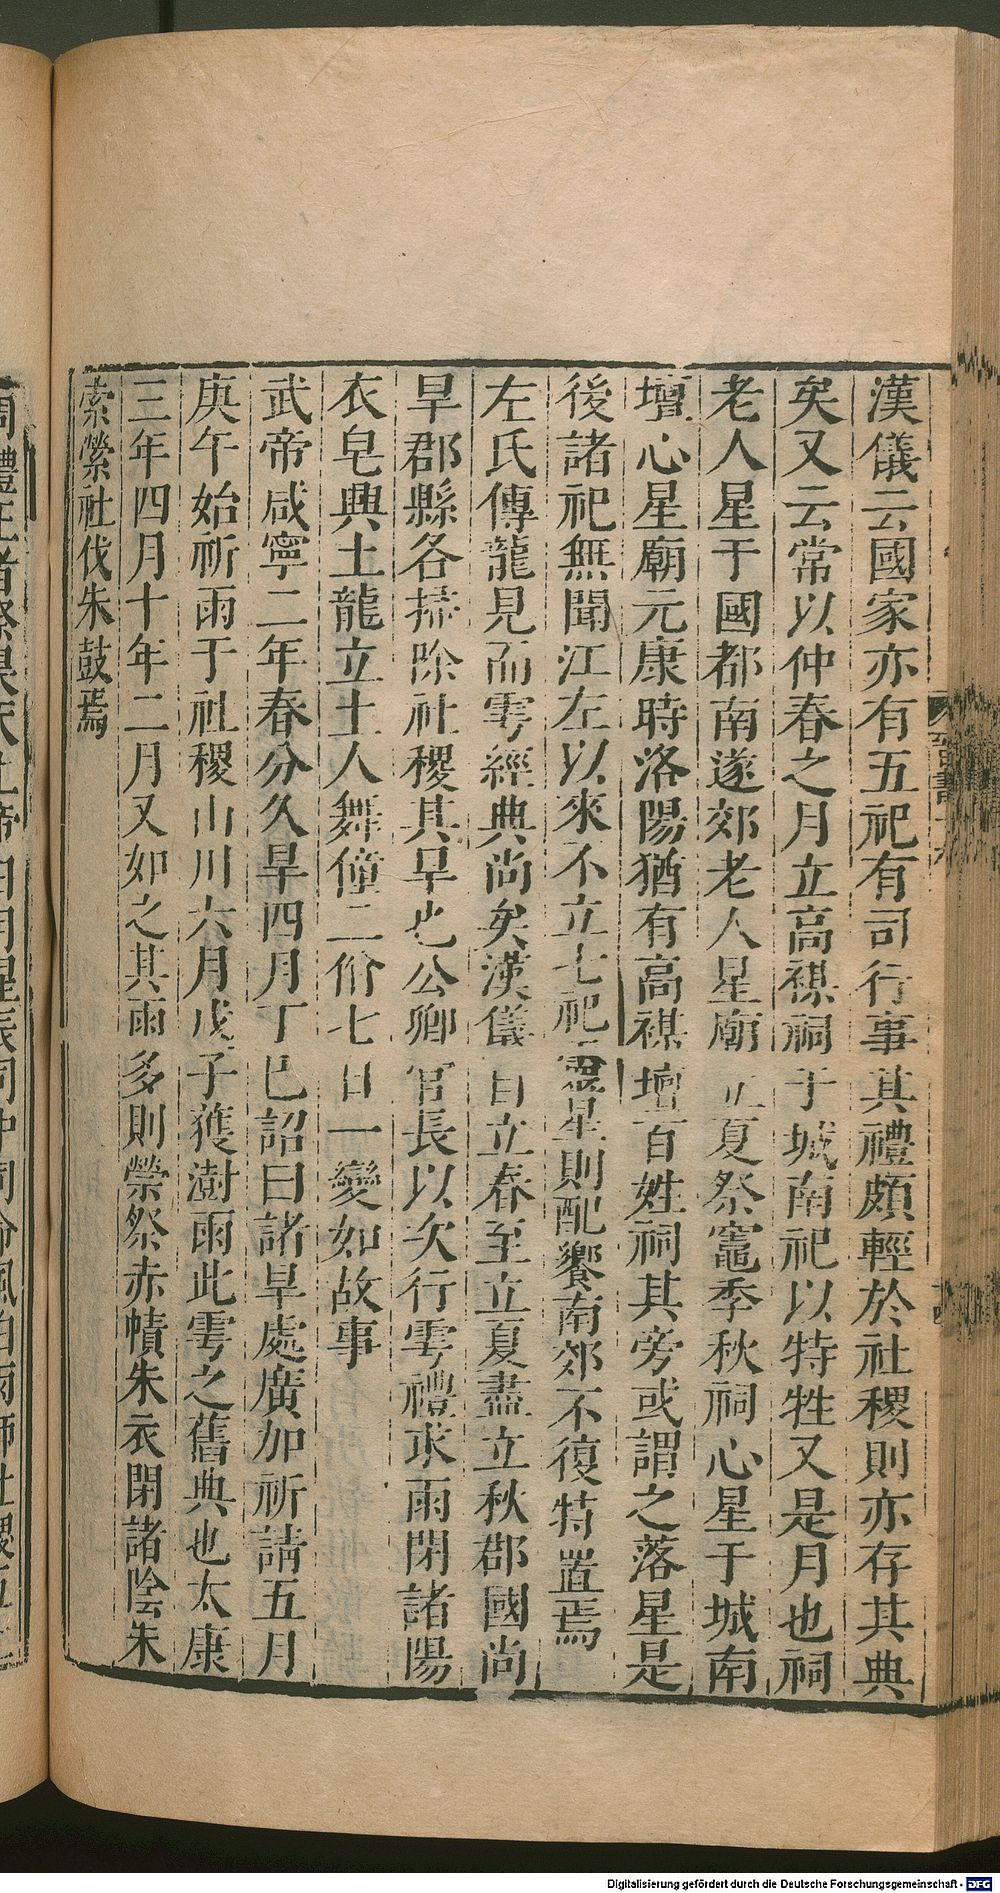 漢儀云國家亦有五祀有司行事其禮頗輕於社稷則亦存其典
矣又云常以仲春之月立高禖祠于城南祀以特牲又是月也祠
老人星于國都南遂郊老人星廟立夏祭竈季秋祠心星于城南
壇心星廟元康時洛陽猶有高禖壇百姓祠其旁或謂之落星是
後諸祀無聞江左以來不立七祀靈星則配饗南郊不復特置焉
左氏傳龍見而雩經典尚矣漢儀自立春至立夏盡立秋郡國尚
旱郡縣各掃除社稷其旱也公卿官長以次行雩禮求雨閉諸陽
衣皂興土龍立土人舞僮二佾七日一變如故事
武帝咸寧二年春分久旱四月丁巳詔曰諸旱處廣加祈請五月
庚午始祈雨于社稷山川六月戊子獲澍雨此雩之舊典也太康
三年四月十年二月又如之其雨多則禜祭赤幘朱衣閉諸陰朱
索縈社伐朱鼓焉
Digitalisierung gefördert durch die Deutsche Forschungsgemeinschaft - DFG